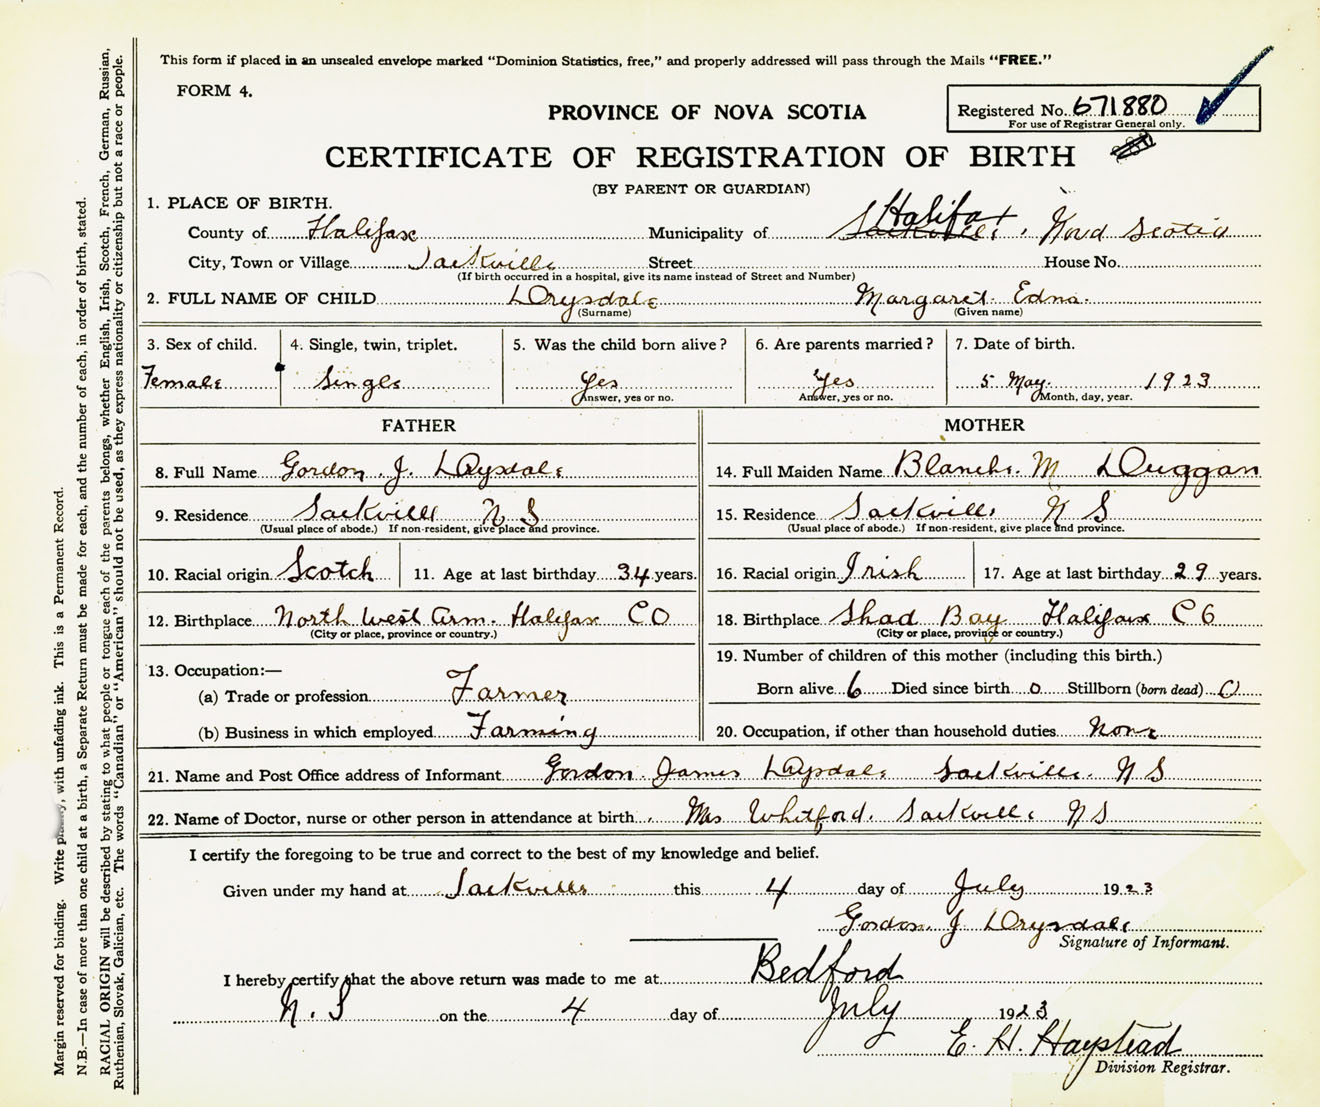 This form if placed in an unsealed envelope marked "Dominion Statistics, free," and properly addressed will pass through the Mails "FREE."
FORM 4.
PROVINCE OF NOVA SCOTIA
Registered No. 671880
For use of Registrar General only.
CERTIFICATE OF REGISTRATION OF BIRTH
(BY PARENT OR GUARDIAN)
1. PLACE OF BIRTH.
County of Halifax Municipality of Halifax Sackville, Nova Scotia
City, Town or Village Sackville Street House No.
(If birth occurred in a hospital, give its name instead of Street and Number)
2. FULL NAME OF CHILD Drysdale Margaret Edna.
(Surname) (Given name)
3. Sex of child. 4. Single, twin, triplet. 5. Was the child born alive? 6. Are parents married? 7. Date of birth.
Female Single Yes Yes 5 May. 1923
Answer, yes or no. Answer, yes or no. Month, day, year.
FATHER MOTHER
8. Full Name Gordon. J. Drysdale 14. Full Maiden Name Blanche. M Duggan
9. Residence Sackville N S 15. Residence Sackville N S
(Usual place of abode.) If non-resident, give place and province. (Usual place of abode.) If non-resident, give place and province.
10. Racial origin Scotch 11. Age at last birthday 34 years. 16. Racial origin Irish 17. Age at last birthday 29 years.
12. Birthplace North West Arm. Halifax CO 18. Birthplace Shad Bay Halifax CO
(City or place, province or country.) (City or place, province or country.)
13. Occupation:— 19. Number of children of this mother (including this birth.)
(a) Trade or profession Farmer Born alive 6 Died since birth 0 Stillborn (born dead) 0
(b) Business in which employed Farming 20. Occupation, if other than household duties None
21. Name and Post Office address of Informant Gordon James Drysdale Sackville. N S
22. Name of Doctor, nurse or other person in attendance at birth Mrs Whitford. Sackville N S
I certify the foregoing to be true and correct to the best of my knowledge and belief.
Given under my hand at Sackville this 4 day of July 1923
Gordon. J Drysdale
Signature of Informant.
I hereby certify that the above return was made to me at Bedford
N. S on the 4 day of July 1923
E. H. Haystead
Division Registrar.
Margin reserved for binding. Write plainly, with unfading ink. This is a Permanent Record.
N.B.—In case of more than one child at a birth, a Separate Return must be made for each, and the number of each, in order of birth, stated.
RACIAL ORIGIN will be described by stating to what people or tongue each of the parents belongs, whether English, Irish, Scotch, French, German, Russian,
Ruthenian, Slovak, Galician, etc. The words "Canadian" or "American" should not be used, as they express nationality or citizenship but not a race or people.